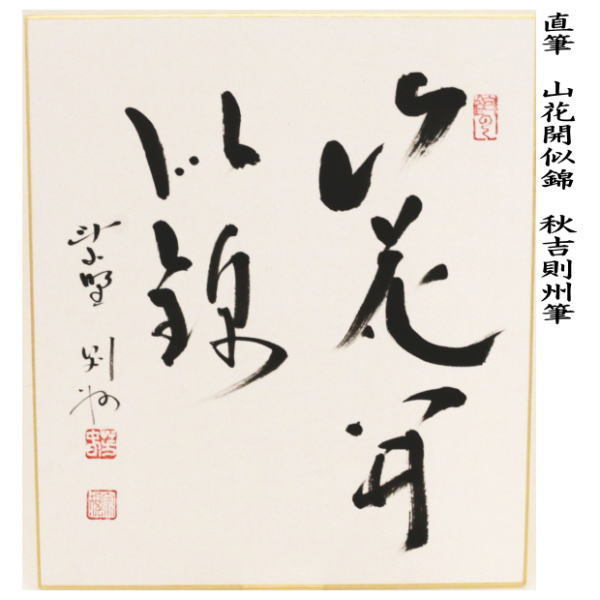 直筆　山花開似錦　秋吉則州筆
山花開
似錦
紫野 則州